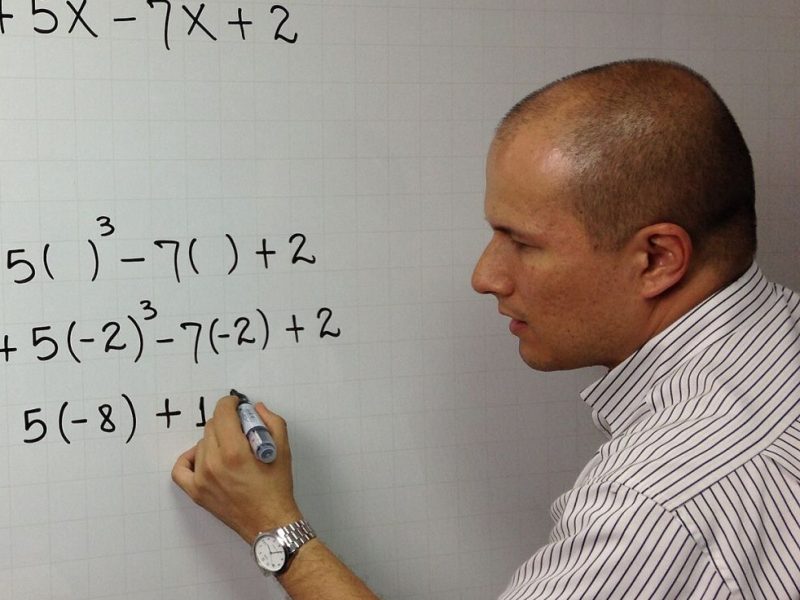 + 5X - 7X + 2
5( )³ - 7( ) + 2
+ 5(-2)³ - 7(-2) + 2
5(-8) + 1